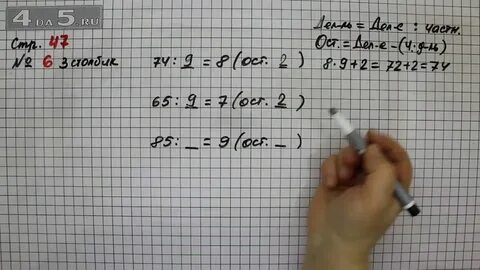 4DA5.RU
Стр. 47
№ 6 3 столбик
Дел-ль = Дел-е : частн.
Ост. = Дел-е - (Ч·д-ль)
8·9+2 = 72+2=74
74 : 9 = 8 (ост. 2)
65 : 9 = 7 (ост. 2)
85 : _ = 9 (ост. _)